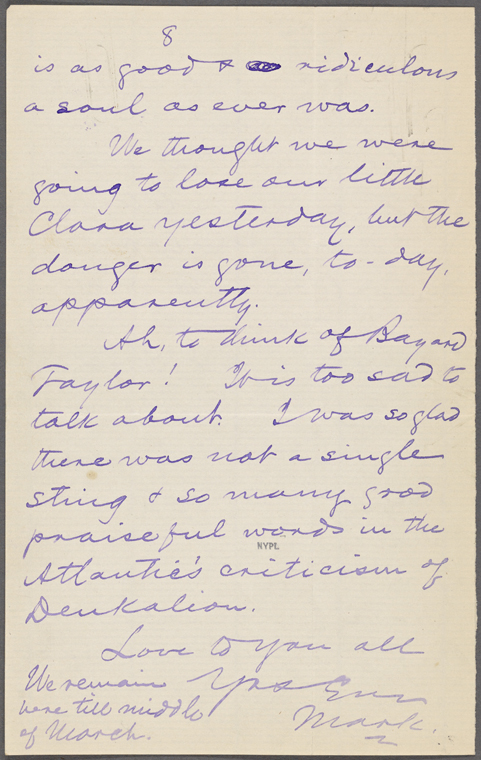 8
is as good & ridiculous
a soul as ever was.
We thought we were
going to lose our little
Clara yesterday, but the
danger is gone, to-day,
apparently.
Ah, to think of Bayard
Taylor! It is too sad to
talk about. I was so glad
there was not a single
sting & so many good
praiseful words in the
NYPL
Atlantic's criticism of
Deukalion.
Love to you all
Yrs Ever
Mark.
We remain
here till middle
of March.